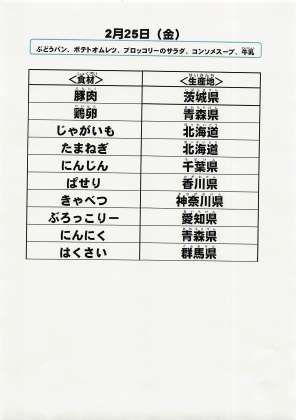 2月25日（金）
ぶどうパン、ポテトオムレツ、ブロッコリーのサラダ、コンソメスープ、牛乳
＜食材＞ ＜生産地＞
豚肉 茨城県
鶏卵 青森県
じゃがいも 北海道
たまねぎ 北海道
にんじん 千葉県
ぱせり 香川県
きゃべつ 神奈川県
ぶろっこりー 愛知県
にんにく 青森県
はくさい 群馬県